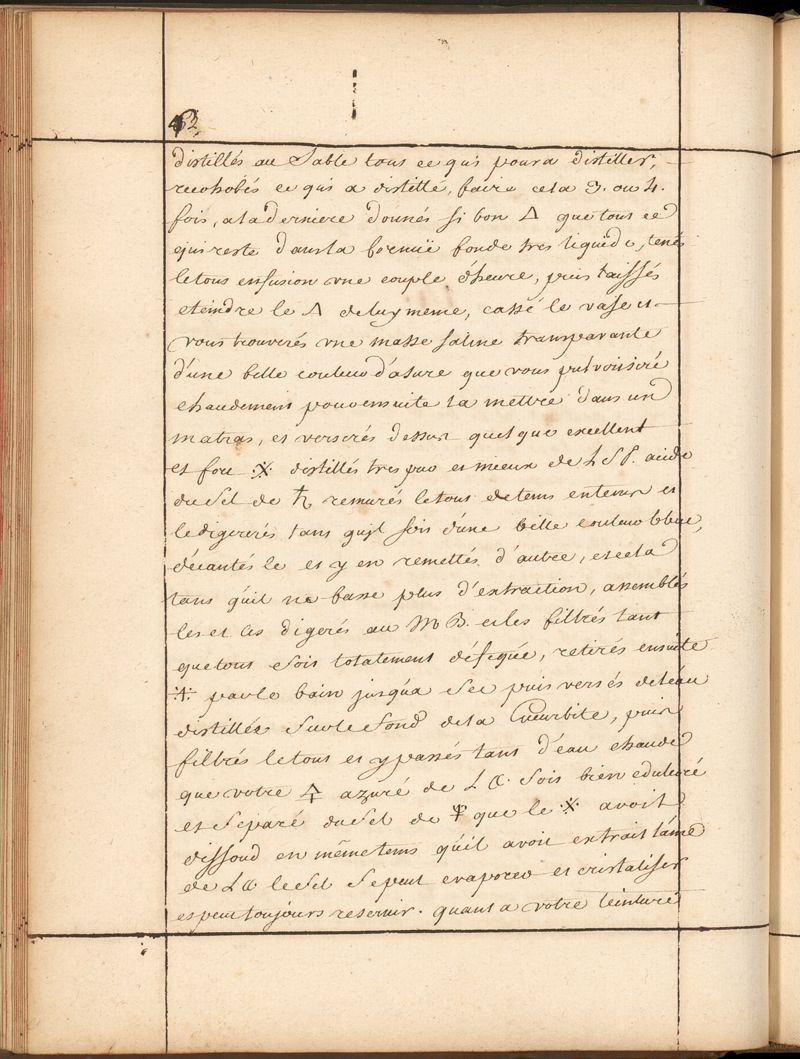 62.
distillés au Sable tous ce qui poura distiller,
recohobés ce qui a distillé, faire cela 3. ou 4.
fois, ala derniere donnés si bon 🜂 que tous ce
qui reste dans la cornuë fonde tres liquide, tenés
le tous enfusion une couple d'heure, puis laissés
eteindre le 🜂 de luy meme, cassé le vase et
vous trouverés une masse saline transparante
d'une belle couleur d'asure que vous pulvoriseré
chaudement pour ensuite la mettre dans un
matras, et verserés dessus quelque excellent
et fort 🜊 distillés tres pur et mieux de L S P. acide
du Sel de ♄ remurés le tous de tems entems et
le digererés tans quil soit d'une belle couleur bleue,
décantés le et y en remettés d'autre, et cela
tans quil ne fasse plus d'extraction, assemblés
les et les digerés au M B. et les filtrés tant
que tous sois totalement deféqué, retirés ensuite
🜊 par le bain jusqu'a sec puis versés de l'eau
distillés sur le fond de la Cucurbite, puis
filtrés le tous et y passés tans d'eau chaude
que votre 🜍 azuré de L C. sois bien edulcoré
et separé du Sel de que le 🜊 avoit
dissoud en même tems quil avoit extrait l'ame
de L C le Sel se peut evaporer et cristaliser
et peut toujours reservir. quant a votre teinture